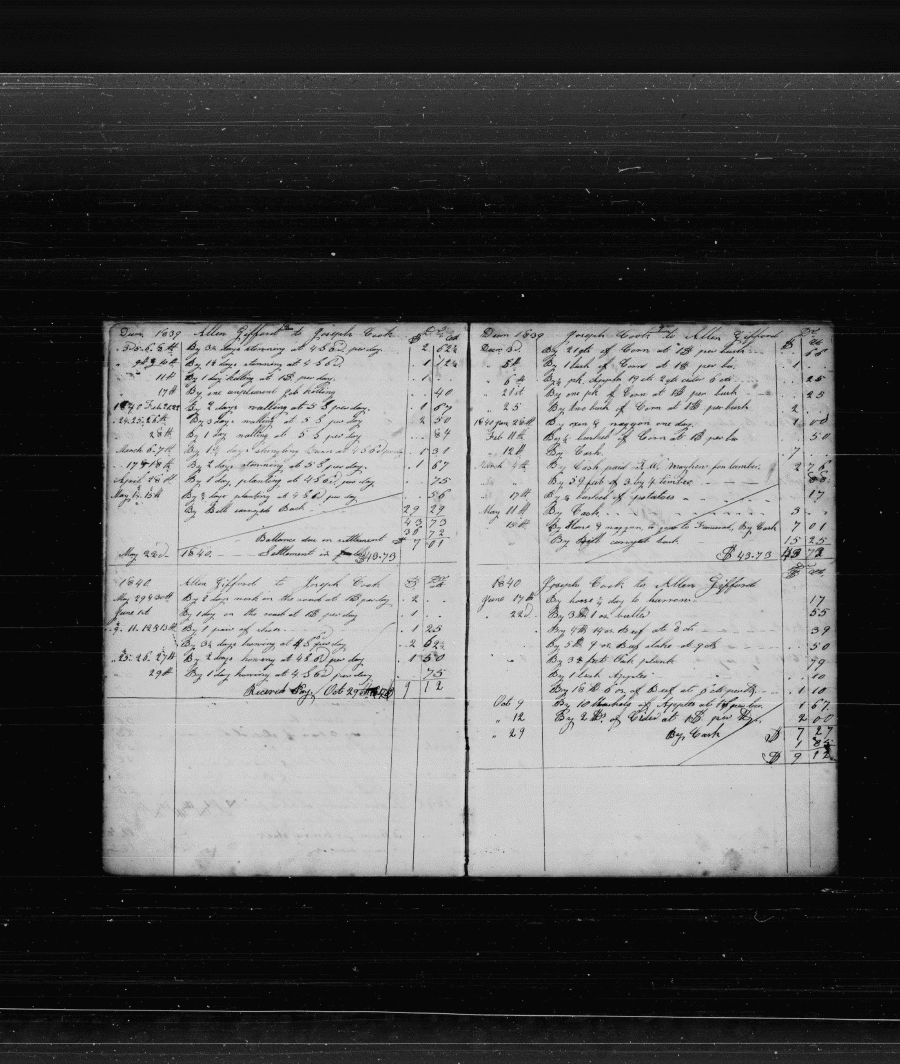 Decm 1839 Allen Gifford Dr to Joseph Cook $ cts
By 3½ days stoning at 4 S 6d per day 2 62½
By 1½ days stoning at 4 S 6d 1 12½
11th By 1 day halling at 1$ per day 1 . .
17th By one halling 40
1840 Feb By 2 days walling at 5 S per day. 1 67
" 24. 25. 26th By 3 days walling at 5 S per day 2 50
" 28th By 1 day walling at 5 S per day 84
March 6. 7th By 1¾ days Barn at 4 S 6d per day 1 31
" 17 & 18th By 2 days stoning at 5 S per day 1 67
April 28th By 1 day planting at 4 S 6d per day . 75
May 15th By ¾ days planting at 4 S 6d per day . 56
By Bill brought Back 29 29
43 73
36 72
Ballance due on settlement $ 7 01
May 22d 1840 Settlement in full $43.73
1840 Allen Gifford to Joseph Cook $ cts
May 29 & 30th By 2 days work on the road at 1$ per day . 2 . .
June 1st By 1 day on the road at 1$ per day 1 . .
" 9. 11. 12 & 13th By 1 pair of shoes . 1 25
By 3½ days howing at 4 S 6d per day . 2 62½
" 25. 26. 27th By 2 days howing at 4 S 6d per day . 1 50
" 29th By 1 day howing at 4 S 6d per day 75
Received Pay, Oct 29th 1840 $ 9 12
Decm 1839 Joseph Cook Dr to Allen Gifford $ cts
Decm 3d By 21 qts of Corn at 1$ per bush 66
" 5th By 1 bush of Corn at 1$ per bu 1 .
" 6th By ½ pk Apples 19 cts 2 qts cider 6 cts . 25
" 21st By one pk of Corn at 1$ per bush . 25
" 25 By two bush of Corn at 1$ per bush 2 .
1840 Jan 28th By oxen & waggon one day. 1 00
Feb 11th By ½ bushel of Corn at 1$ per bu . 50
" 12th By Cash . 7 . .
March 4th By Cash paid Mayhew for lumber 2 76
" By 59 feet of 3 by 4 timber
" 17th By ½ bushel of potatoes 17
May 11th By Cash 5 . .
" 15th By Horse & waggon to go to Transcend, By Cash 7 01
By Bill brought back 15 25
$43.73 43 73
1840 Joseph Cook to Allen Gifford $ cts
June 17th By horse ½ day to harrow 17
" 22d By 3 lb 1 oz butter 55
" By 4 lb 14 oz Beef at 8 cts . 39
" By 5 lb 9 oz Beef stake at 9 cts . 50
" By 3 feet Oak plank . 79
" By 1 bush Apples . 10
By 18 lb 6 oz of Beef at 6 cts pound . 1 10
Oct 9 By 10 bushels of Apples at 1 S per bu 1 67
" 12 By 2 B. of Cider at 1$ per B. 2 00
$ 7 27
" 29 By Cash 1 85
$ 9 12